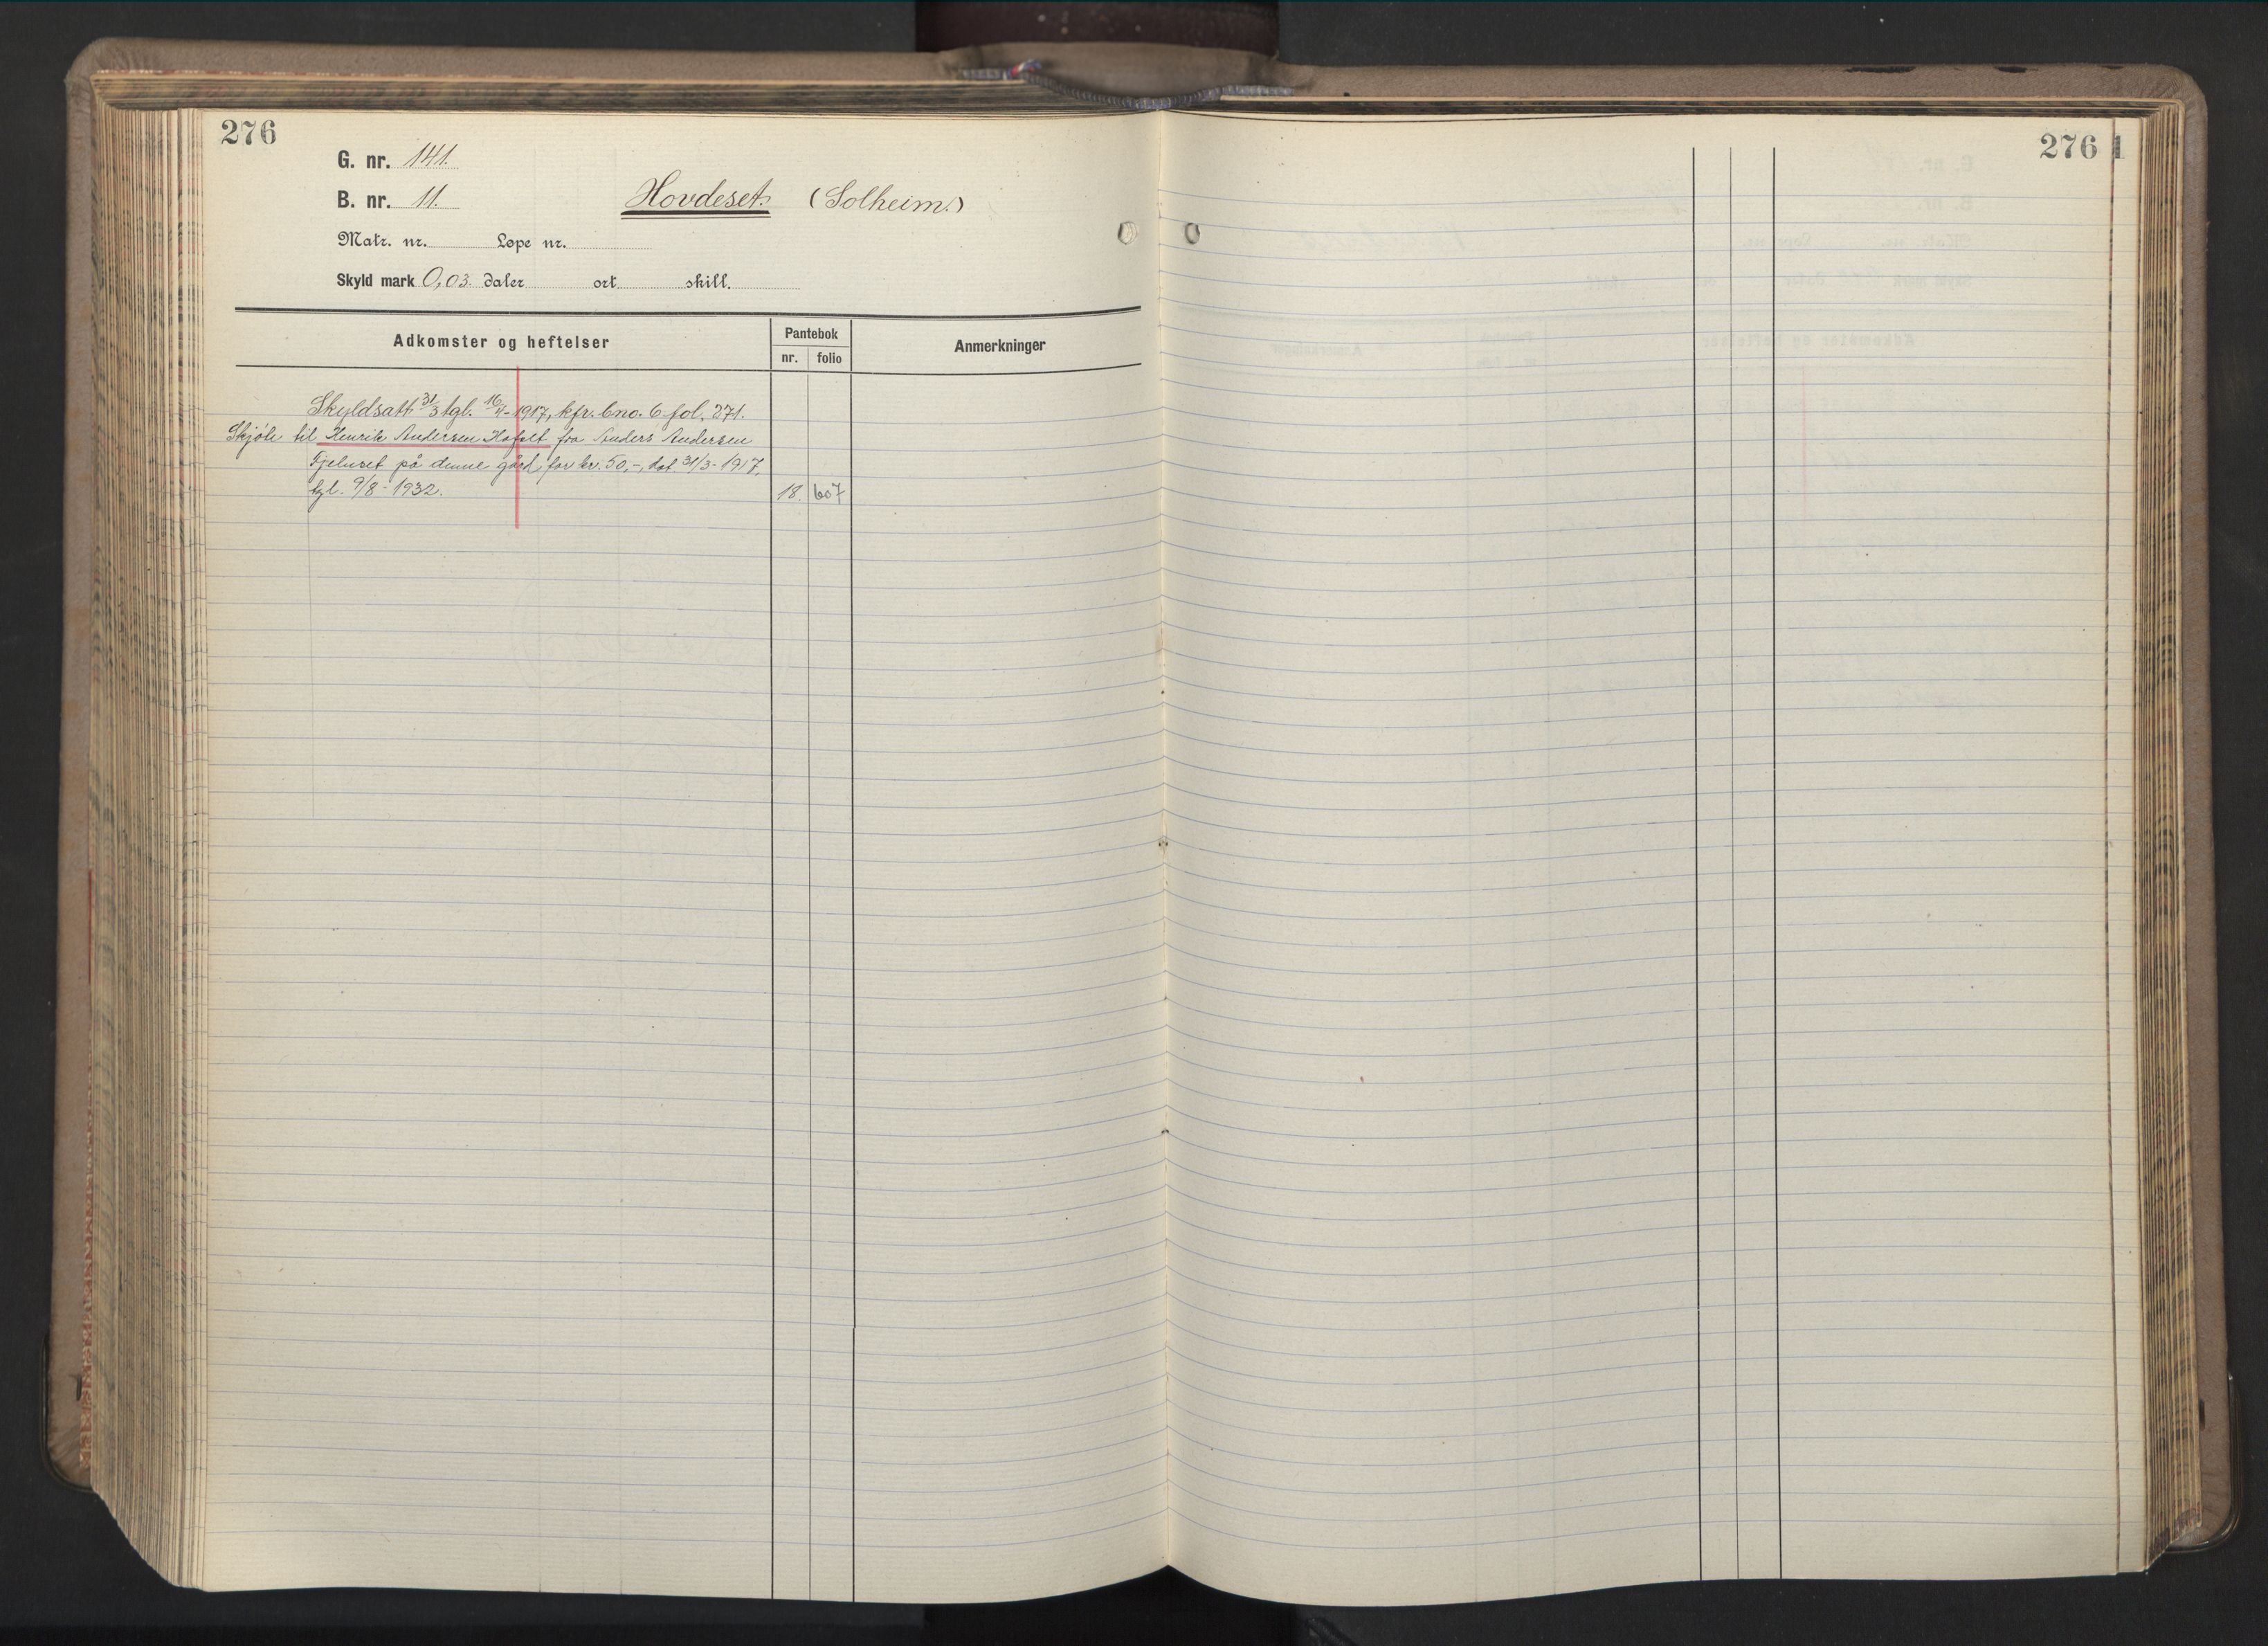 276
G. nr. 141.
B. nr. 11. Hovdeset. (Solheim.)
Matr. nr. Løpe nr.
Skyld mark 0,03. daler ort skill.
Adkomster og heftelser Pantebok Anmerkninger
nr. folio
Skyldsatt 31/3 tgl. 16/4-1917, kfr. bno. 6 fol. 271.
Skjøte til Henrik Andersen fra Anders Andersen
på denne gård, for kr. 50,-, dat. 31/3-1917,
tgl. 9/8-1932. 18. 607
276